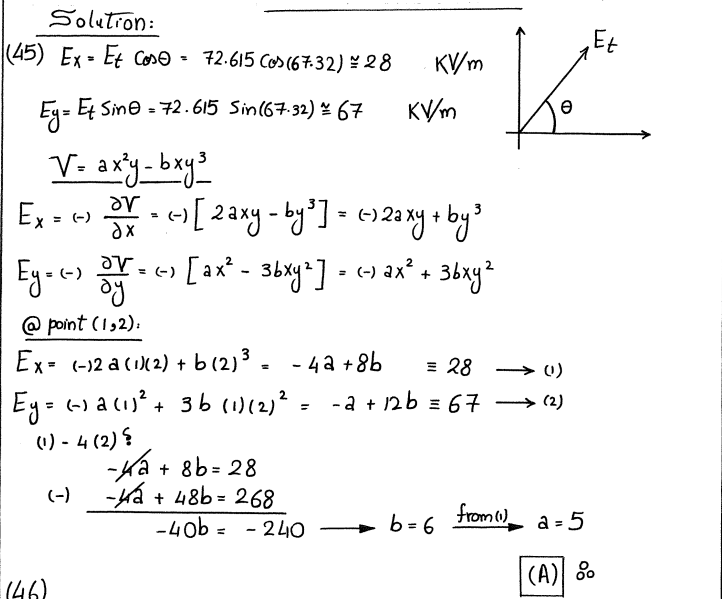 Solution:
(45) Ex = Et Cosθ = 72.615 Cos(67.32) ≅ 28 KV/m
Et
θ
Ey = Et Sinθ = 72.615 Sin(67.32) ≅ 67 KV/m
V = ax²y - bxy³
Ex = (-) ∂V/∂x = (-) [2axy - by³] = (-) 2axy + by³
Ey = (-) ∂V/∂y = (-) [ax² - 3bxy²] = (-) ax² + 3bxy²
@ point (1,2):
Ex = (-)2 a(1)(2) + b(2)³ = -4a + 8b ≡ 28 → (1)
Ey = (-) a(1)² + 3b (1)(2)² = -a + 12b ≡ 67 → (2)
(1) - 4(2):
-4a + 8b = 28
(-) -4a + 48b = 268
-40b = -240 → b = 6 from(1) → a = 5
(A)
(46)